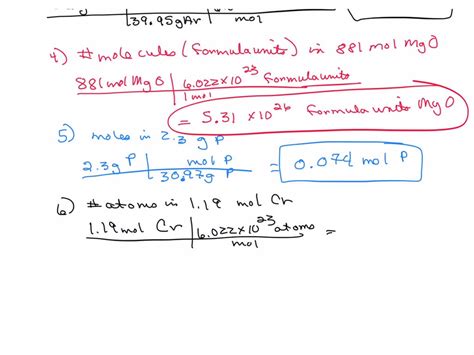 39.95g Ar mol
4) # molecules (formula units) in 881 mol MgO
881 mol MgO | 6.022 x 10^23 formula units
1 mol
= 5.31 x 10^26 formula units MgO
5) moles in 2.3 g P
2.3 g P | mol P = 0.074 mol P
30.97g P
6) # atoms in 1.19 mol Cr
1.19 mol Cr | 6.022 x 10^23 atoms =
mol